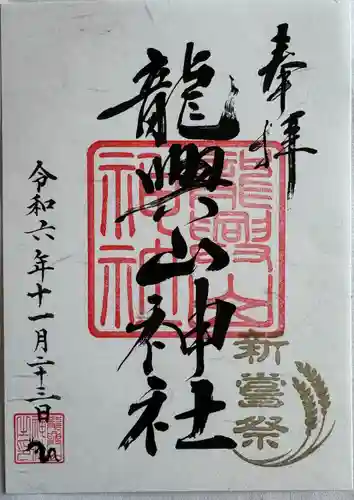 奉拝
龍興山神社
龍興山
神社
新嘗祭
令和六年十一月二十三日